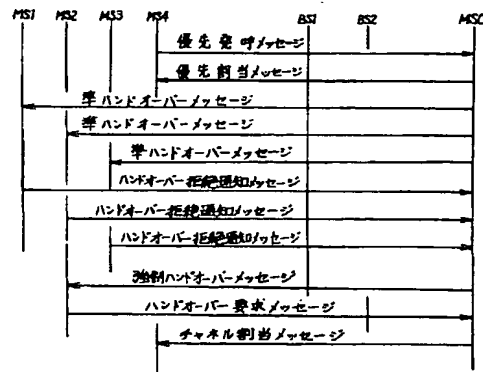 MS1 MS2 MS3 MS4 BS1 BS2 MSC
優先発呼メッセージ
優先割当メッセージ
準ハンドオーバーメッセージ
準ハンドオーバーメッセージ
準ハンドオーバーメッセージ
ハンドオーバー拒絶通知メッセージ
ハンドオーバー拒絶通知メッセージ
ハンドオーバー拒絶通知メッセージ
強制ハンドオーバーメッセージ
ハンドオーバー要求メッセージ
チャネル割当メッセージ